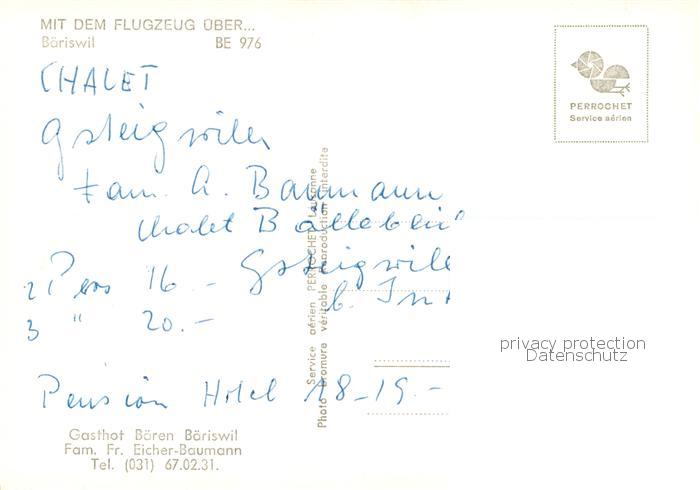 MIT DEM FLUGZEUG ÜBER...
Bäriswil BE 976
PERROCHET
Service aérien
CHALET
Gsteigwiler
Fam. A. Baumann
Chalet
Gsteigwile
b. Int
2 Pers 16.-
3 " 20.-
Pension Hotel 18-19.-
Service aérien PERROCHET Lausanne
Photo bromure véritable Reproduction interdite
Gasthof Bären Bäriswil
Fam. Fr. Eicher-Baumann
Tel. (031) 67.02.31.
privacy protection
Datenschutz